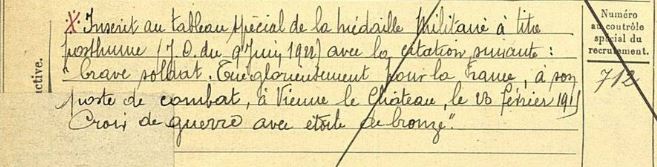 ※ Inscrit au tableau spécial de la médaille militaire à titre
posthume (J.O. du 9 Juin 1922) avec la citation suivante :
"brave soldat. Tué glorieusement pour la France, à son
poste de combat, à Vienne le Château, le 23 février 1915
Croix de guerre avec étoile de bronze".
ctive.
Numéro
au contrôle
spécial du
recrutement.
712